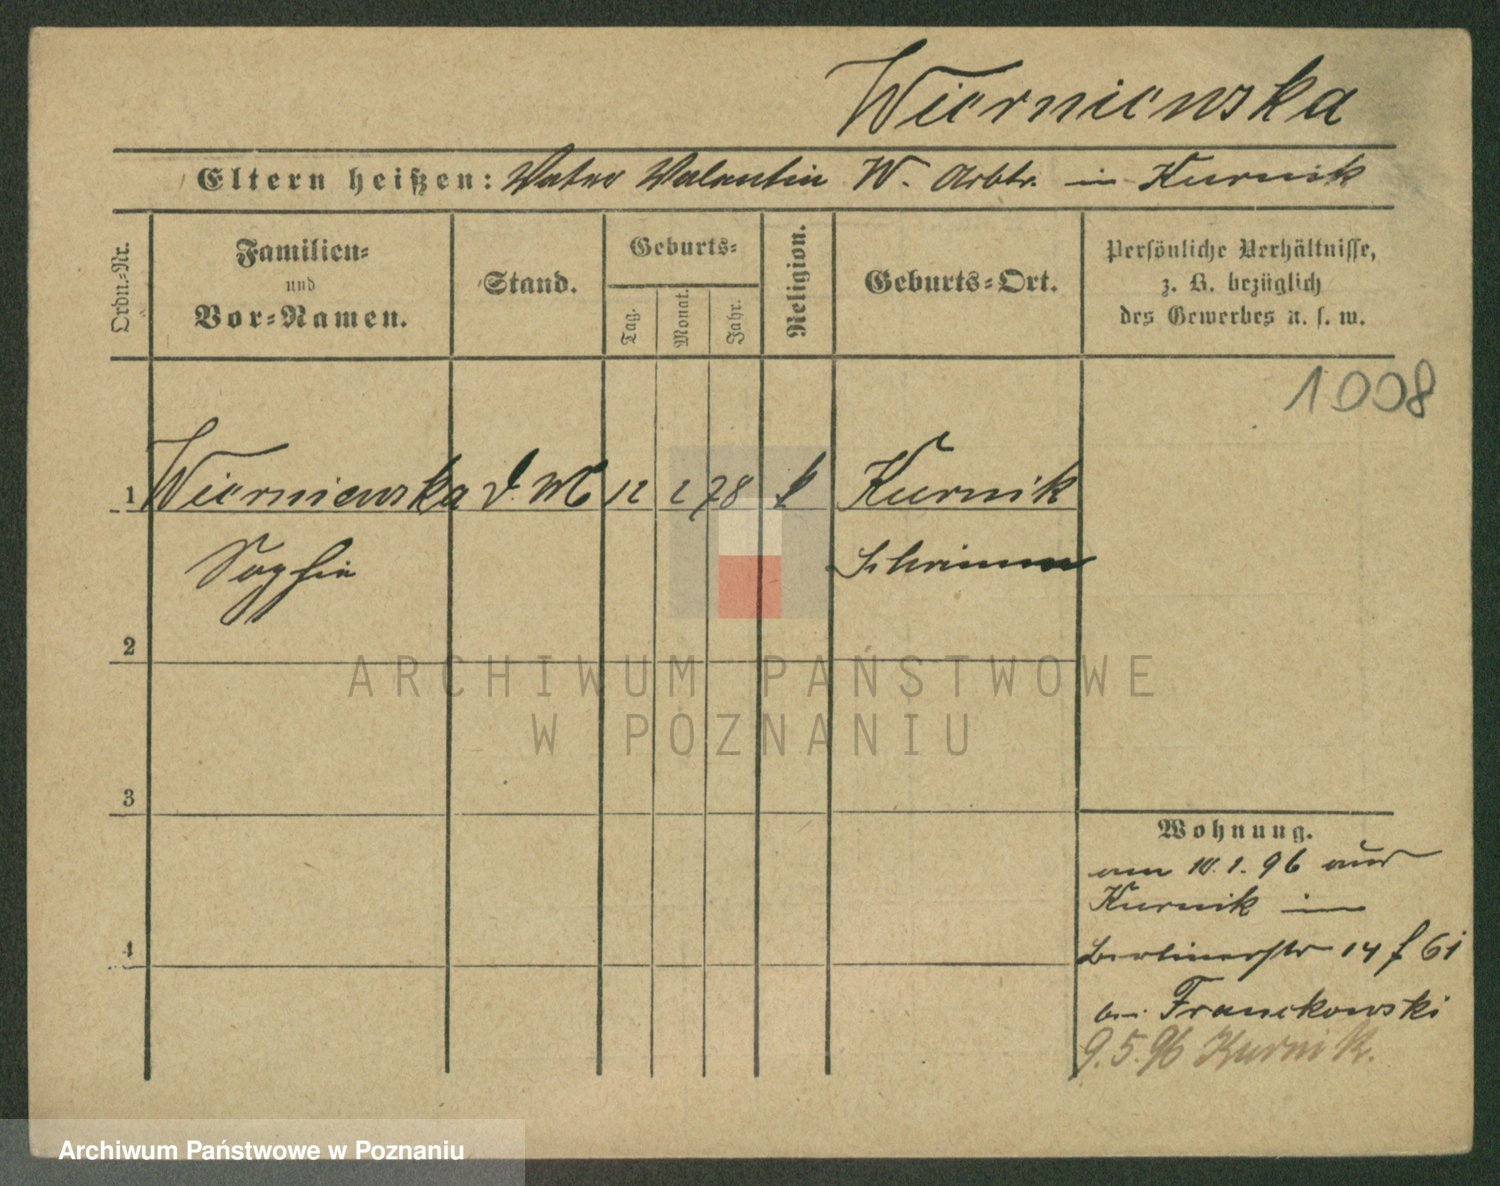 Wierniewska
Eltern heißen: Vater Valentin W. Arbtr. in Kurnik
Ordn.-Nr.
Familien-
und
Vor-Namen.
Stand.
Geburts-
Tag.
Monat.
Jahr.
Religion.
Geburts-Ort.
Persönliche Verhältnisse,
z. B. bezüglich
des Gewerbes u. s. w.
1008
1 Wierniewska d. M 12 2 78 k Kurnik
Sophie Schrimm
2
3
4
Wohnung.
am 10.1.96 aus
Kurnik in
Berlinerstr 14 f 61
bei Franckowski
9.5.96 Kurnik.
ARCHIWUM PAŃSTWOWE
W POZNANIU
Archiwum Państwowe w Poznaniu